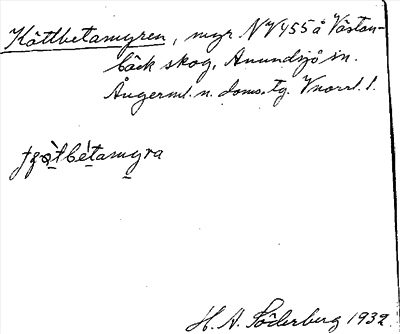 Köttbetamyren, myr NV455 å Västan-
bäck skog, Anundsjö sn.
Ångerml. n. doms.tg. Vnorrl. l.
H. A. Söderberg 1932.